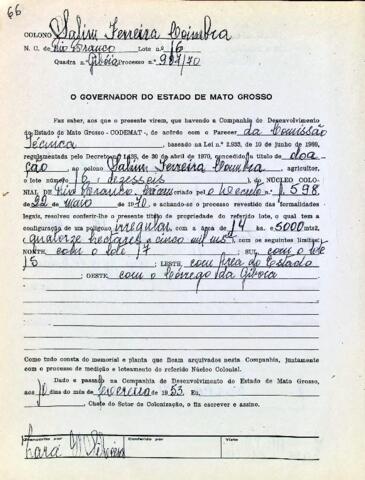 66
COLONO Salim Ferreira Coimbra
N. C. de Rio Branco Lote n.º 16
Quadra n.º Gibóia Processo n.º 987/70
O GOVERNADOR DO ESTADO DE MATO GROSSO
Faz saber, aos que o presente virem, que havendo a Companhia de Desenvolvimento
do Estado de Mato Grosso - CODEMAT -, de acordo com o Parecer da Comissão
Técnica, baseado na Lei n.º 2.933, de 10 de junho de 1969,
regulamentada pelo Decreto n.º 1.436, de 30 de abril de 1970, concedida a título de doa
ção ao colono Salim Ferreira Coimbra, agricultor,
o lote número 16 dizesseis do NÚCLEO COLO-
NIAL DE Rio Branco, criado pelo Decreto n.º 1.598,
de 22 de maio de 1970, e achando-se o processo revestido das formalidades
legais, resolveu conferir-lhe o presente título de propriedade do referido lote, o qual tem a
configuração de um polígono irregular com a área de 14 hs e 5000 mts2,
quatorze hectares e cinco mil ms² com os seguintes limites:
NORTE, com o lote 17; SUL, com o lote
15; LESTE, com Área do Estado
; OESTE, com o Córrego da Giboia
Como tudo consta do memorial e planta que ficam arquivados nesta Companhia, juntamente
com o processo de medição e loteamento do referido Núcleo Colonial.
Dado e passado na Companhia de Desenvolvimento do Estado de Mato Grosso,
aos dias do mês de fevereiro de 1953. Eu,
Chefe do Setor de Colonização, o fiz escrever e assino.
Transcrito por Conferido por Visto